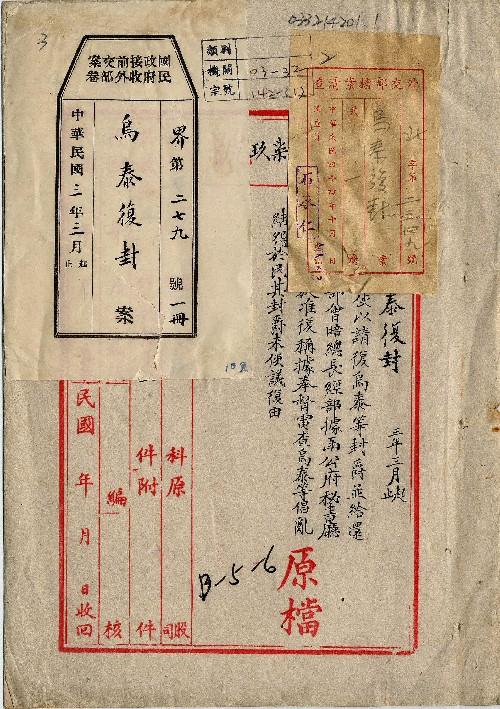 033214201 1
3
國民政府接收前外交部案卷
界第二七九號一冊
烏泰復封案
中華民國三年三月起止
類別
機關 03-32
宗號
外交部檔案
北字第二三四九號
烏泰復封
案
柒
玖
泰復封 三年三月起止
使以請復烏泰等封爵並給還
部會晤總長經部據函公府秘書廳
准復稱據奉督電查烏泰等倡亂
結怨於民其封爵未便議復由
原檔
B-5-6
原科
司股
附件
件
編
核
民國 年 月 日收回